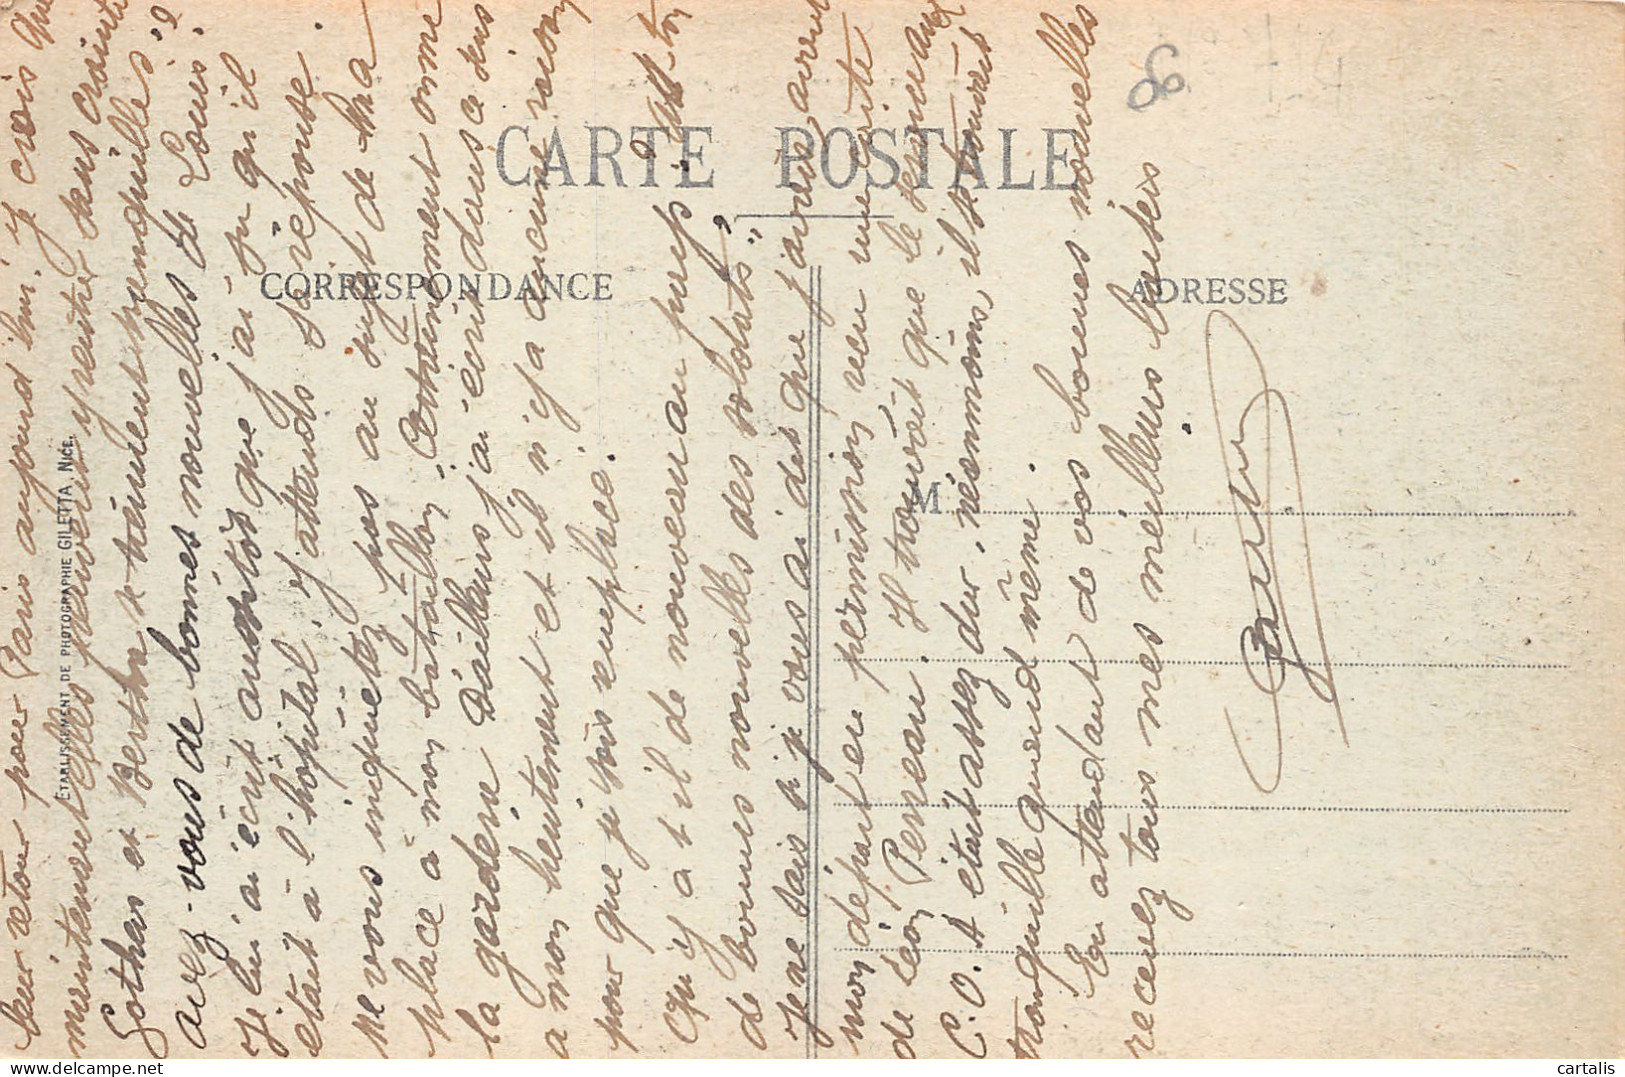 CARTE POSTALE
CORRESPONDANCE
ADRESSE
M
ÉTABLISSEMENT DE PHOTOGRAPHIE GILETTA, NICE.
leur retour pour Paris aujourd'hui. Je crois que
maintenant elles peuvent y rentrer sans crainte
Gothas et Bertha tranquilles".
avez-vous de bonnes nouvelles de Louis?
je lui ai écrit aussitôt que j'ai su qu'il
était à l'hôpital, j'attends sa réponse.
ne vous inquiétez pas au sujet de ma
place à mon bataillon,
la garderie. D'ailleurs j'ai écrit dans ce sens
à mon lieutenant et il n'y a aucune raison
pour que je sois remplacé.
Qu'y a t il de nouveau au pays? A-t-on
de bonnes nouvelles des "soldats".
Je ne sais si je vous ai dit que j'avais avant
mon départ en permission reçu une carte
de Léon Perreau. Il trouvait que le
C.O.A était assez dur, néanmoins il se trouvait
tranquille quand même.
En attendant de vos bonnes nouvelles
recevez tous mes meilleurs baisers
8
cartalis
delcampe.net